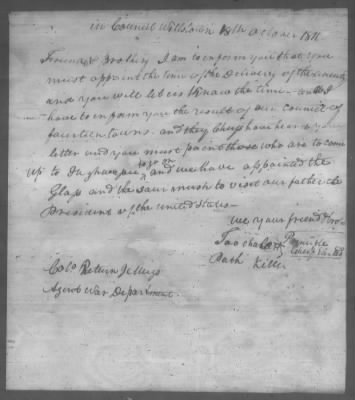 in Council Willstown 18th October 1811
Friend & Brother, I am to inform you that you
must appoint the time of the Delivery of the annuity
and you will let us know the time - and I
have to inform you the result of our council of
fourteen towns - and they Chiefs have hear your
letter and you must point those who are to come
up to and we have appointed the
Glass and the Sour mush to visit our father the
President of the United States -
we your friend & bro-
Too chala
Path Killer
Colo. Return J. Meigs
Agent War Department